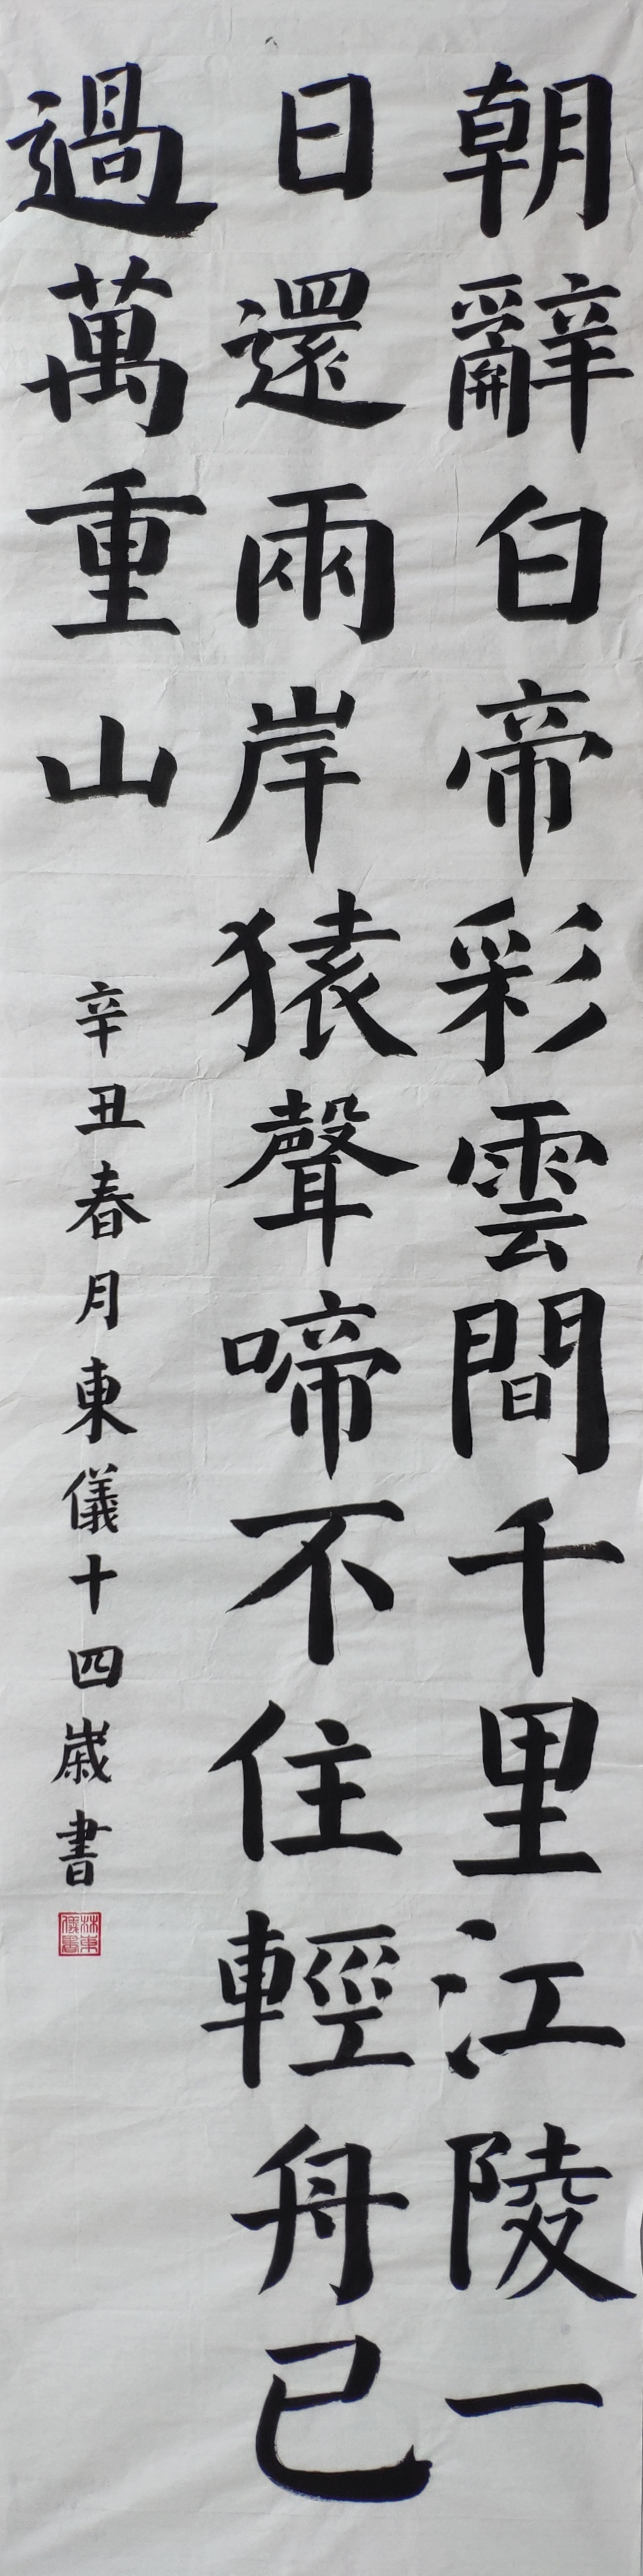 朝辭白帝彩雲間千里江陵一
日還兩岸猿聲啼不住輕舟已
過萬重山
辛丑春月東儀十四歲書
林東儀書